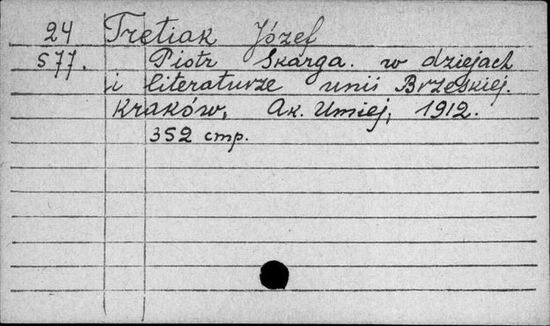 24 Tretiak Józef
577. Piotr Skarga. w dziejach
i literaturze unii Brzeskiej.
Kraków, Ak. Umiej, 1912.
352 стр.